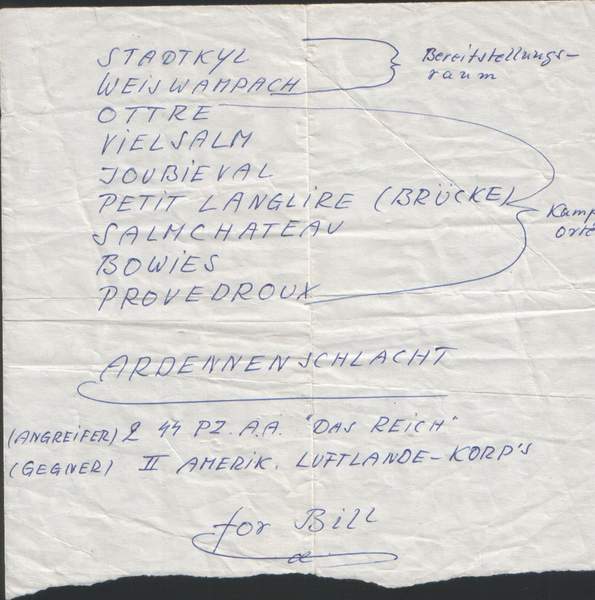 STADTKYL
WEISWAMPACH
Bereitstellungs-
raum
OTTRE
VIELSALM
JOUBIEVAL
PETIT LANGLIRE (BRÜCKE)
SALMCHATEAU
BOWIES
PROVEDROUX
Kampf
orte
ARDENNENSCHLACHT
(ANGREIFER) 2 SS PZ. A.A. "DAS REICH"
(GEGNER) II AMERIK. LUFTLANDE-KORP'S
for Bill